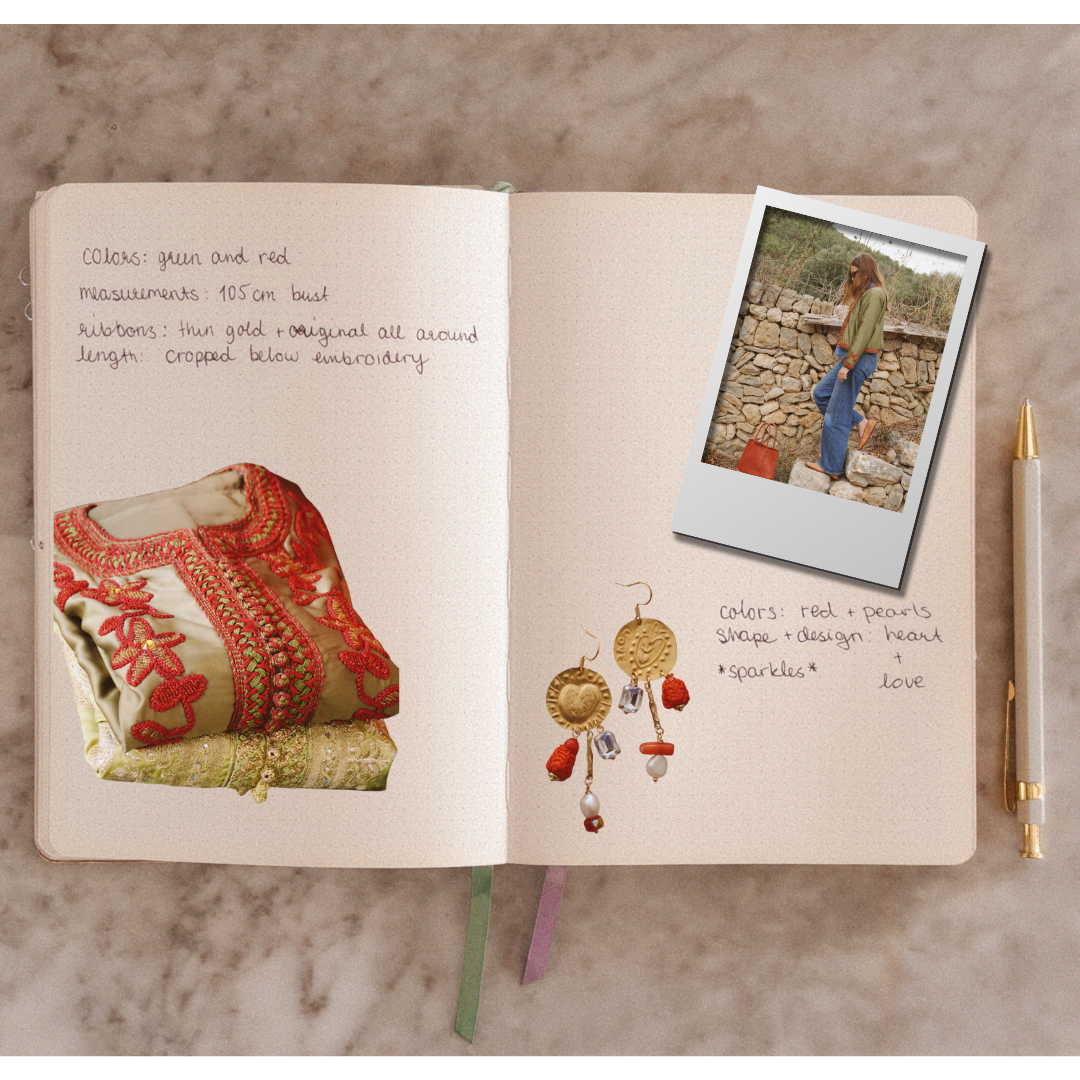 colors: green and red
measurements: 105 cm bust
ribbons: thin gold + original all around
length: cropped below embroidery
colors: red + pearls
shape + design: heart
+
*sparkles*
love
LOVE